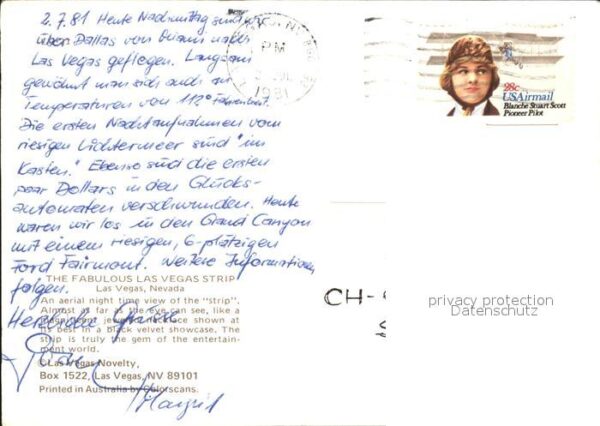 2.7.81 Heute Nachmittag sind wir
über Dallas von Miami nach
Las Vegas geflogen. Langsam
gewöhnt man sich auch an
Temperaturen von 112° Fahrenheit.
Die ersten Nachtaufnahmen vom
riesigen Lichtermeer sind "im
Kasten." Ebenso sind die ersten
paar Dollars in den Glücks-
automaten verschwunden. Heute
waren wir los in den Grand Canyon
mit einem riesigen, 6-plätzigen
Ford Fairmont. Weitere Informationen
folgen.
Herzliche Grüsse
Margrit
THE FABULOUS LAS VEGAS STRIP
Las Vegas, Nevada
An aerial night time view of the "strip".
Almost as far as the eye can see, like a
magnificent jeweled necklace shown at
its best in a black velvet showcase. The
strip is truly the gem of the entertain-
ment world.
© Las Vegas Novelty,
Box 1522, Las Vegas, NV 89101
Printed in Australia by Colorscans.
PM
1981
28c
USAirmail
Blanche Stuart Scott
Pioneer Pilot
CH-
privacy protection
Datenschutz